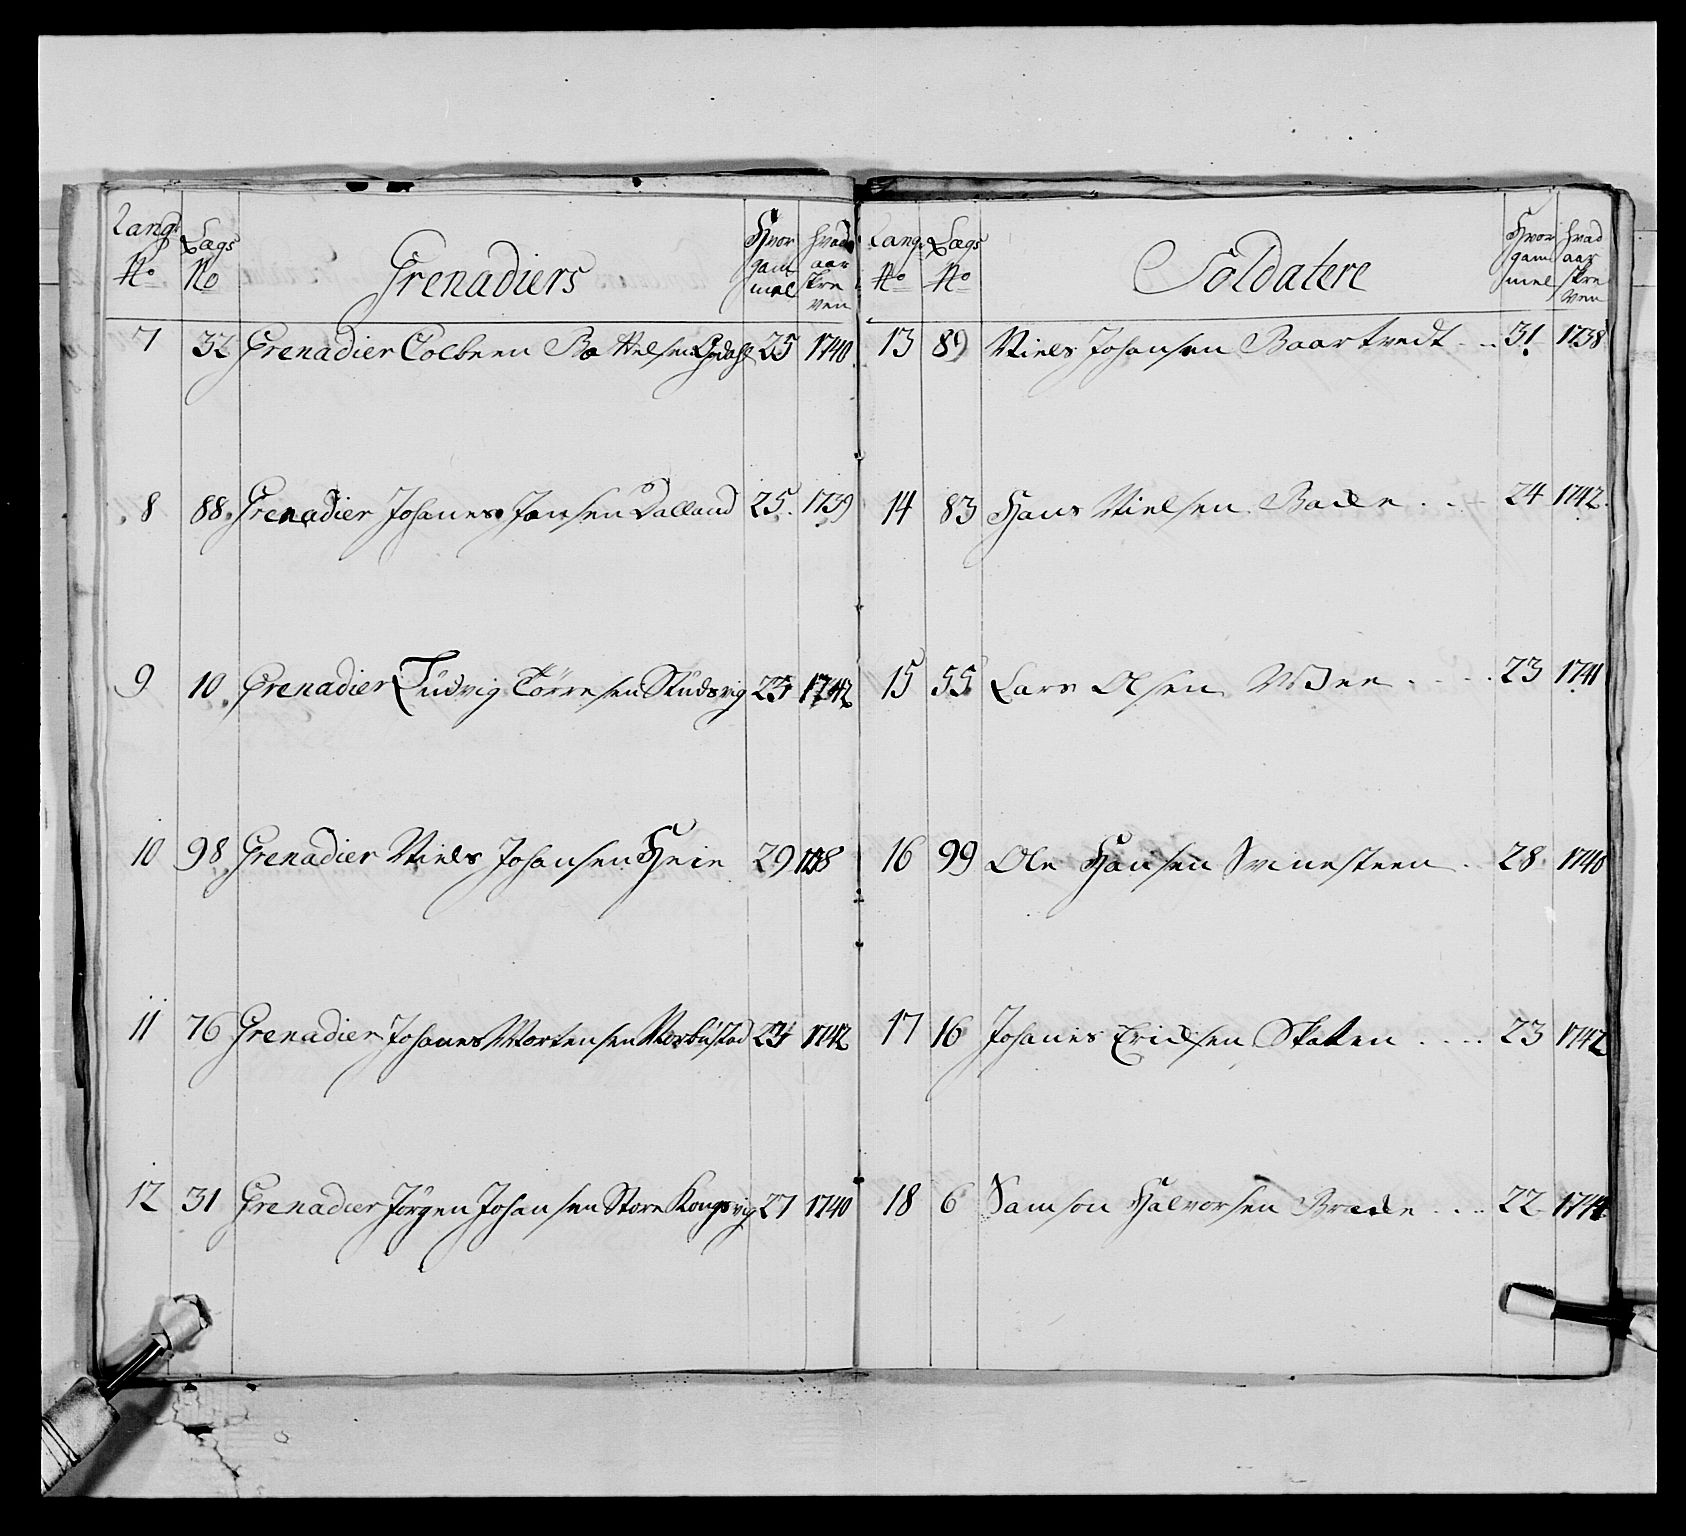 Rang No Lægs No Grenadiers Hvor gammel hvad aar skreven
7 32 Grenadier Colbeen Opdahl 25 1740
8 88 Grenadier Johanes Jansen Dalland 25. 1739
9 10 Grenadier Ludvig Törresen Studsvig 23 1742
10 98 Grenadier Niels Johansen Heie 29 1738
11 76 Grenadier Johanes Mortensen 23 1742
12 31 Grenadier Jörgen Johansen Store Kongsvig 27 1740
Rang No Lægs No Soldatere Hvor gammel hvad aar skreven
13 89 Niels Johansen Baartvedt 31 1738
14 83 Hans Nielsen Backe 24 1742
15 55 Lars Olsen 23 1741
16 99 Ole Hansen Svinesteen 28 1740
17 16 Johanes Ericksen 23 1742
18 6 Samson Halvorsen 22